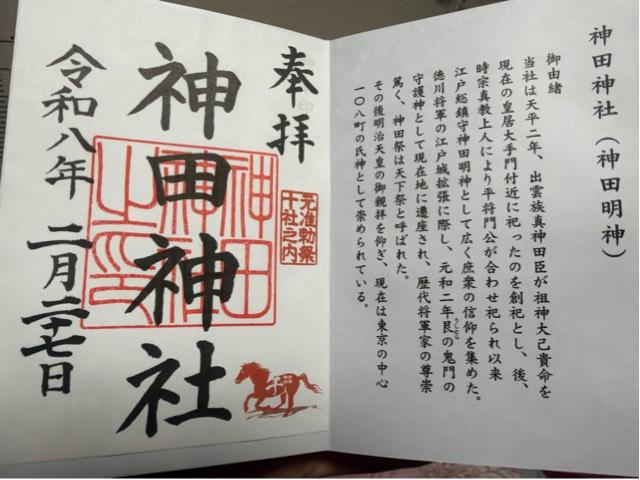 神田神社(神田明神)
御由緒
当社は天平二年、出雲族真神田臣が祖神大己貴命を
現在の皇居大手門付近に祀ったのを創祀とし、後、
時宗真教上人により平将門公が合わせ祀られ以来
江戸総鎮守神田明神として広く庶衆の信仰を集めた。
徳川将軍の江戸城拡張に際し、元和二年艮の鬼門の
うしとら
守護神として現在地に遷座され、歴代将軍家の尊崇
篤く、神田祭は天下祭と呼ばれた。
その後明治天皇の御親拝を仰ぎ、現在は東京の中心
一〇八町の氏神として崇められている。
奉拝
元准勅祭
十社之内
神田神社
神田
神社
之印
令和八年 二月二十七日